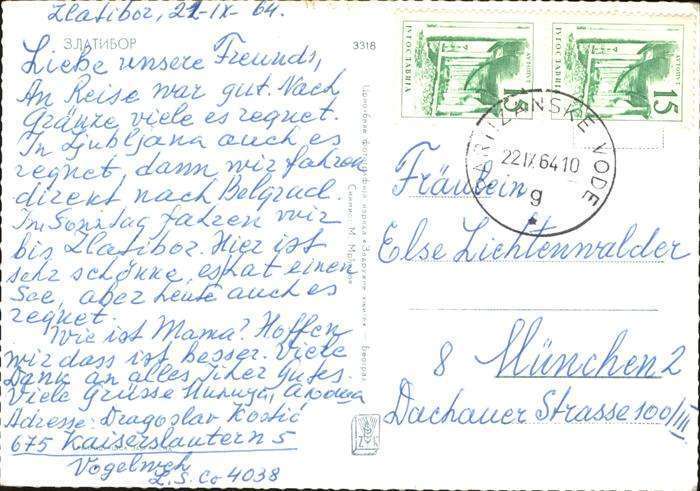 Zlatibor, 21-IX-64.
ЗЛАТИБОР
3318
Liebe unsere Freunds,
An Reise war gut. Nach
Gränze viele es regnet.
In Ljubljana auch es
regnet, dann wir fahren
direkt nach Belgrad.
Im Sonntag fahren wir
bis Zlatibor. Hier ist
sehr schönne, es hat einen
See, aber heute auch es
regnet.
Wie ist Mama? Hoffen
wir dass ist besser. Viele
Dank an alles, iher gutes.
Viele Grüsse
Adresse: Dragoslav Kostić
675 Kaiserslautern 5
Vogelweh
L.S. Co 4038
15
ЈУГОСЛАВИЈА
15
ЈУГОСЛАВИЈА
PARTIZANSKE VODE
22 IX 64 10
g
Fräulein
Else Lichtenwalder
8 München 2
Dachauer Strasse 100/III
Снимио: М.
Београд
Z K